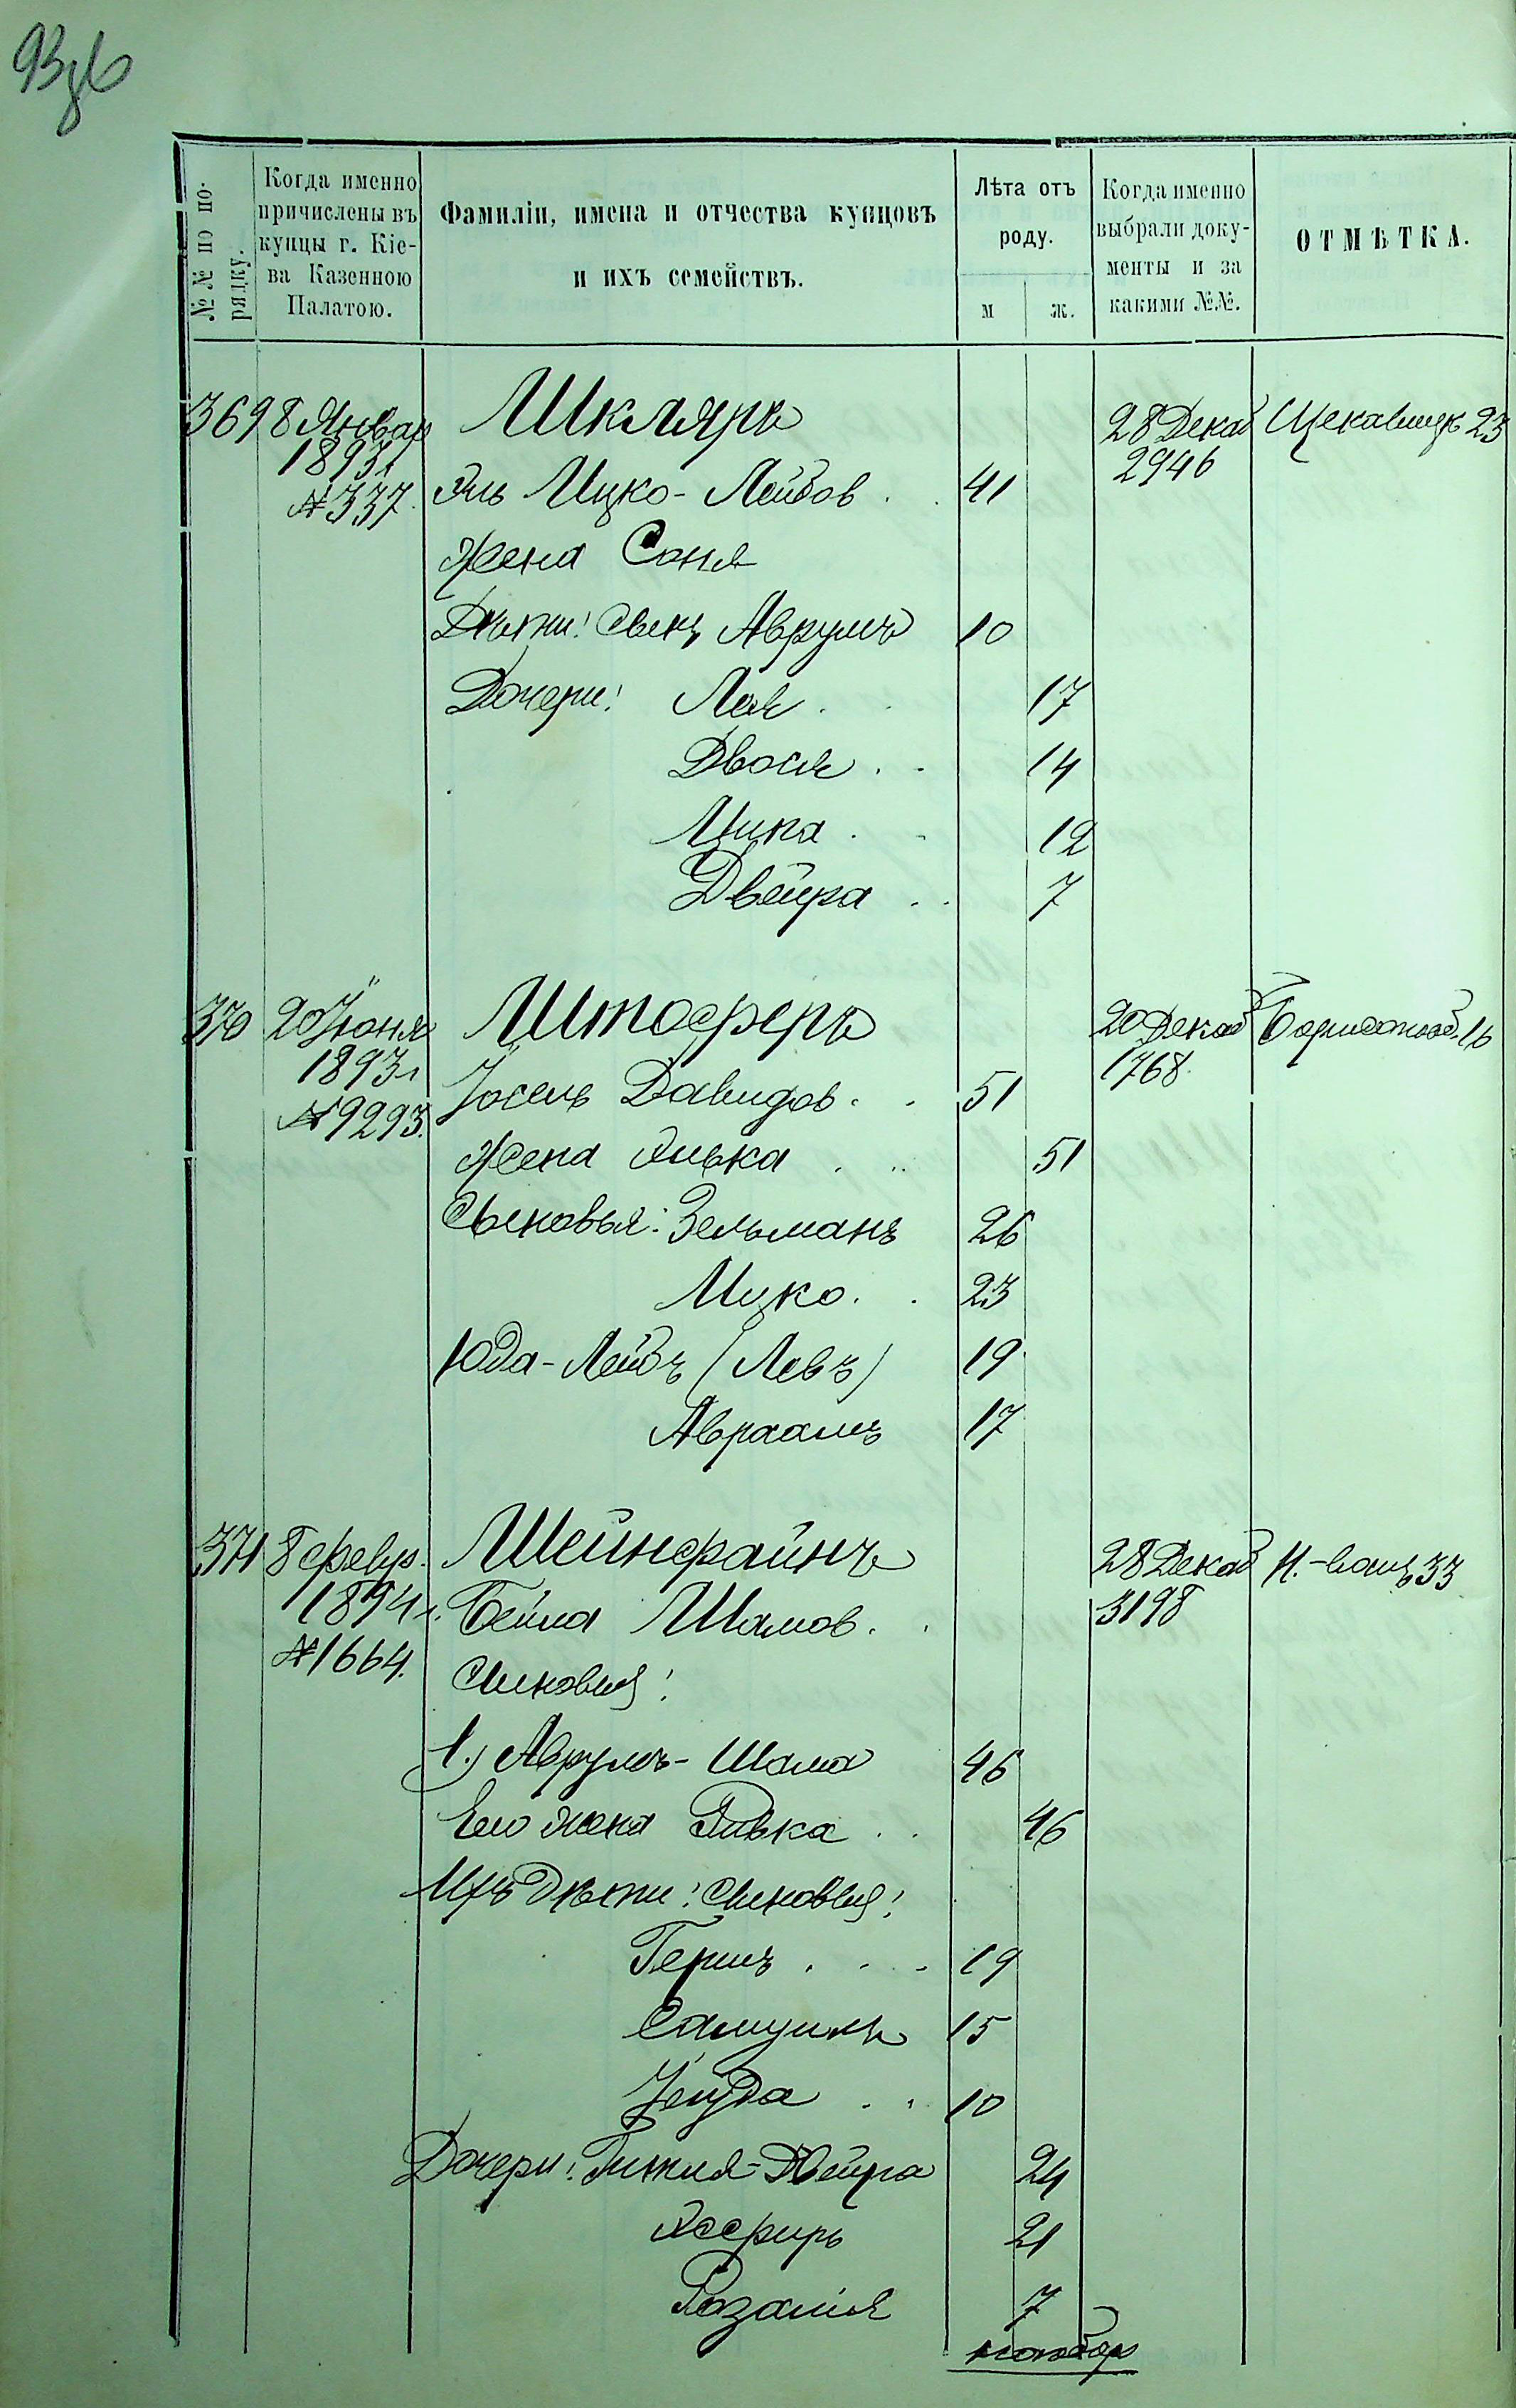 93об
№№ по по-
рядку.
Когда именно
причислены въ
купцы г. Кіе-
ва Казенною
Палатою.
Фамиліи, имена и отчества купцовъ
и ихъ семействъ.
Лѣта отъ
роду.
м
ж.
Когда именно
выбрали доку-
менты и за
какими №№.
ОТМѢТКА.
369 8 Январ Шкляръ 28 Декаб Щекавицк 23
1893 г 2946
№337. Эль Ицко-Лейбов 41
Жена Соня
Дѣти: Сынъ Аврумъ 10
Дочери: Лея 17
Двося 14
Ципа 12
Двейра 7
370 20 Іюня Штоферъ 20 Декаб Борисоглѣб. 16
1893 г 1768.
№9293. Іосель Давидов. 51
Жена Ривка 51
Сыновья: Зельманъ 26
Ицко. 23
Юда-Лейбъ (Левъ) 19
Авраамъ 17
371 8 февр. Шейнфайнъ 28 Декаб Н.-валъ 33
1894 г. Бейла Шамов. 3198
№1664.
Сыновья:
1.) Аврумъ-Шама 46
Его жена Ривка 46
Ихъ дѣти: Сыновья:
Гершъ 19
Самуилъ 15
Іегуда 10
Дочери: Гитля-Двейра 24
Эсфирь 21
Розалія 7